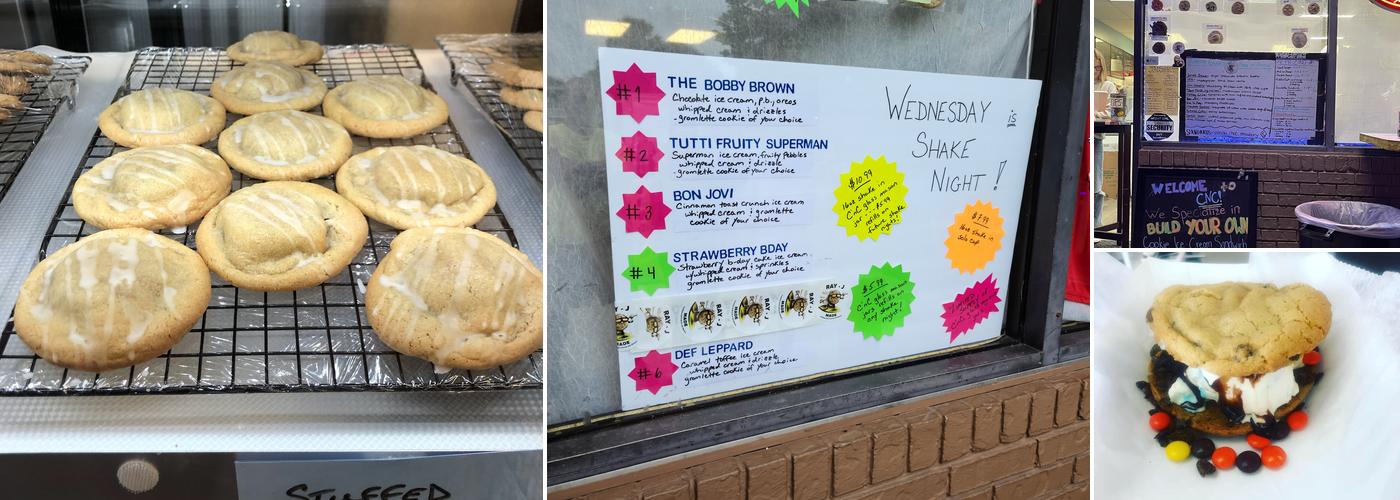 STUFFED
#1
THE BOBBY BROWN
Chocolate ice cream, p.b, oreos
whipped cream & drizzles
-gramlette cookie of your choice
#2
TUTTI FRUITY SUPERMAN
Superman ice cream, fruity Pebbles
whipped cream & drizzle
-gramlette cookie of your choice
#3
BON JOVI
Cinnamon toast crunch ice cream
whipped cream & gramlette
cookie of your choice
#4
STRAWBERRY BDAY
Strawberry b-day cake ice cream
w/whipped cream & sprinkles
gramlette cookie of your choice
RAY-J
RAY-J
RAY-J
RAY-J
MADE
#6
DEF LEPPARD
Caramel toffee ice cream
whipped cream & drizzle
gramlette cookie of your choice
WEDNESDAY is
SHAKE
NIGHT!
$10.99
16oz shake in
CnC glass mason
jar w/ $5.99
refills on
future shake
nights!
$7.99
16oz shake in
solo cup
$5.99
CnC glass mason
jars refills on
any shake
night!
SECURITY
WELCOME to
CNC!
We Specialize in
BUILD YOUR OWN
Cookie Ice Cream Sandwich